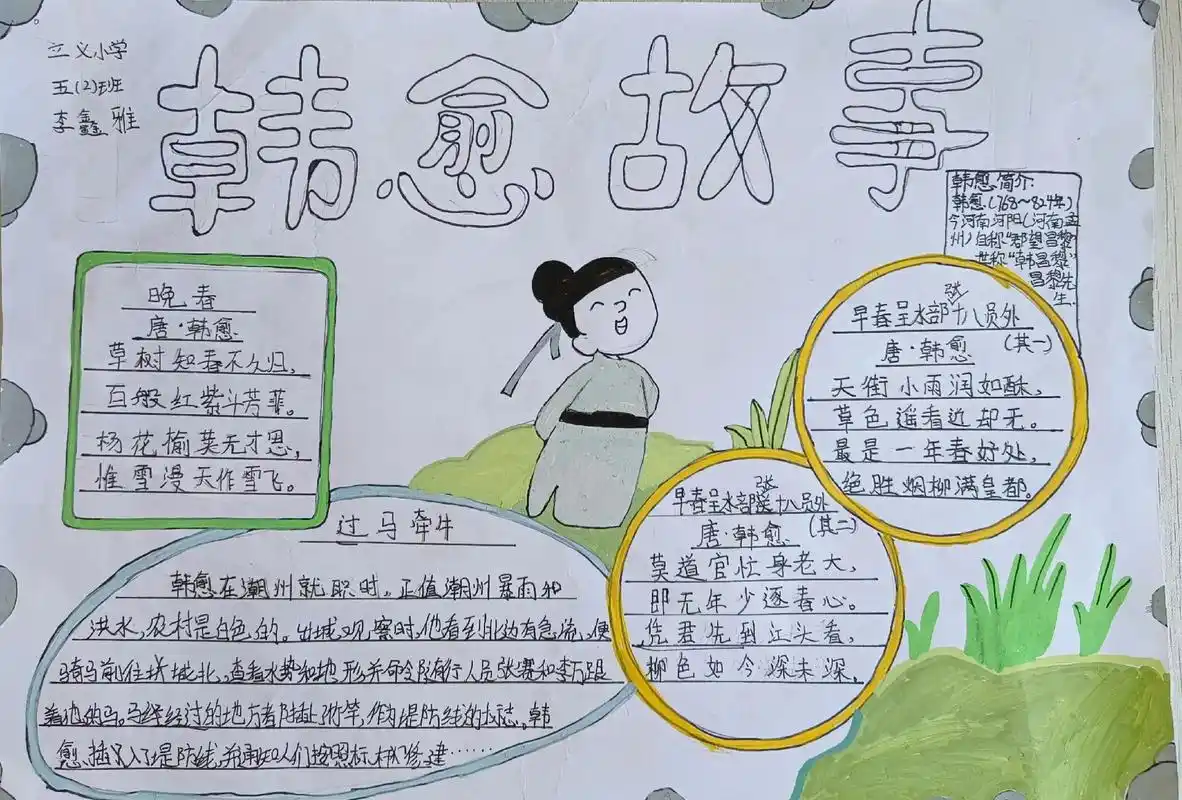 立义小学
五(2)班
李鑫雅
韩愈故事
韩愈简介:
韩愈(768～824年)
今河南河阳(河南孟
州)自称"郡望昌黎
世称"韩昌黎"
昌黎先
生.
晚春
唐·韩愈
草树知春不久归,
百般红紫斗芳菲。
杨花榆荚无才思,
惟雪漫天作雪飞。
早春呈水部张十八员外
唐·韩愈 (其一)
天街小雨润如酥,
草色遥看近却无。
最是一年春好处,
绝胜烟柳满皇都。
早春呈水部张十八员外
唐·韩愈 (其二)
莫道官忙身老大,
即无年少逐春心。
凭君先到江头看,
柳色如今深未深,
过马牵牛
韩愈在潮州就职时,正值潮州暴雨和
洪水,农村是白色的。出城观察时,他看到北边有急流,便
骑马前往城北,查看水势和地形,并命令随行人员张赛和李万跟
着他的马。马经过的地方者附竿,作为堤防线的标志,韩
愈插入了堤防线,并通知人们按照标杆修建……